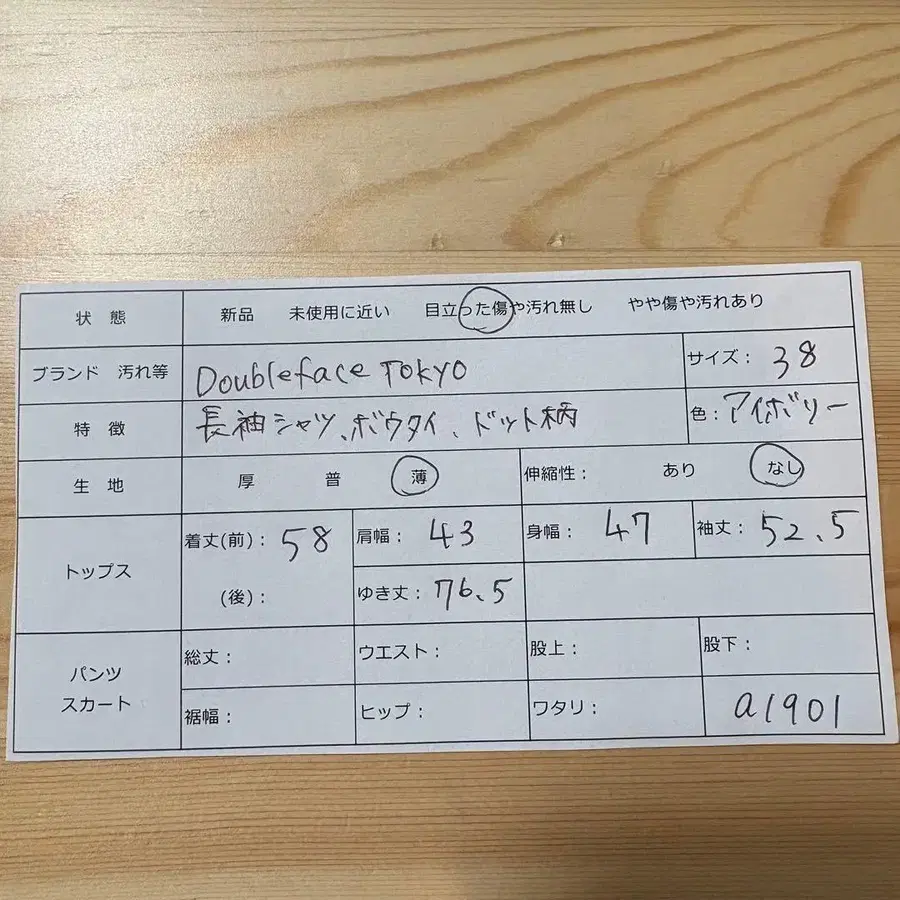 状態 新品 未使用に近い 目立った傷や汚れ無し やや傷や汚れあり
ブランド 汚れ等 Doubleface Tokyo サイズ： 38
特徴 長袖シャツ、ボウタイ、ドット柄 色：アイボリー
生地 厚 普 薄 伸縮性： あり なし
トップス 着丈(前)： 58 肩幅： 43 身幅： 47 袖丈： 52.5
(後)： ゆき丈： 76.5
パンツ スカート 総丈： ウエスト： 股上： 股下：
裾幅： ヒップ： ワタリ： a1901